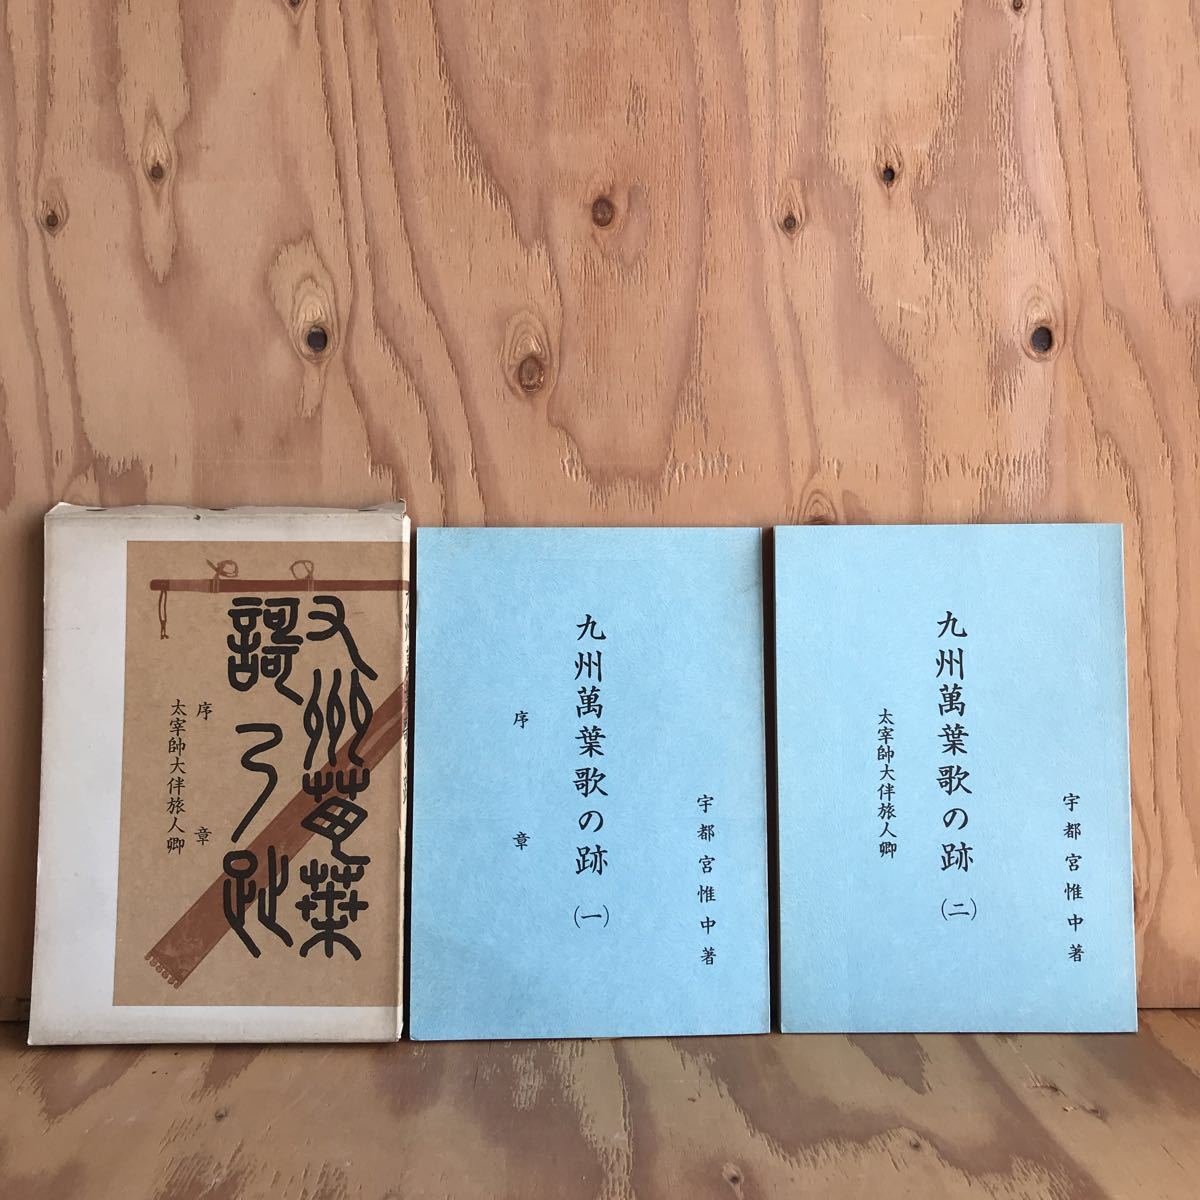 九州萬葉
謌乃趾
序章
太宰帥大伴旅人卿
宇都宮惟中著
九州萬葉歌の跡(一)
序章
宇都宮惟中著
九州萬葉歌の跡(二)
太宰帥大伴旅人卿